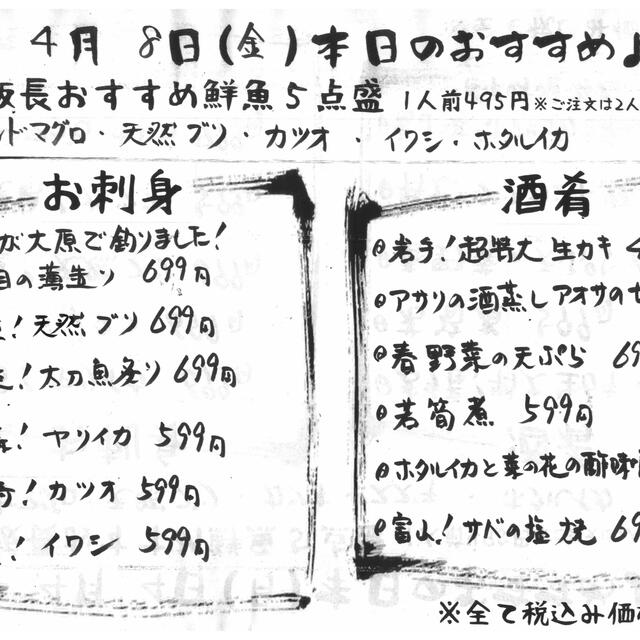 4月 8日(金)本日のおすすめ♪
板長おすすめ鮮魚5点盛 1人前495円 ※ご注文は2人
ドマグロ・天然ブリ・カツオ・イワシ・ホタルイカ
お刺身
が大原で釣りました!
の薄造り 699円
!天然ブリ 699円
!太刀魚炙り 699円
!ヤリイカ 599円
!カツオ 599円
!イワシ 599円
酒肴
岩手!超特大生カキ 4
アサリの酒蒸しアオサの
春野菜の天ぷら 69
若筍煮 599円
ホタルイカと菜の花の酢味
富山!サバの塩焼 69
※全て税込み価